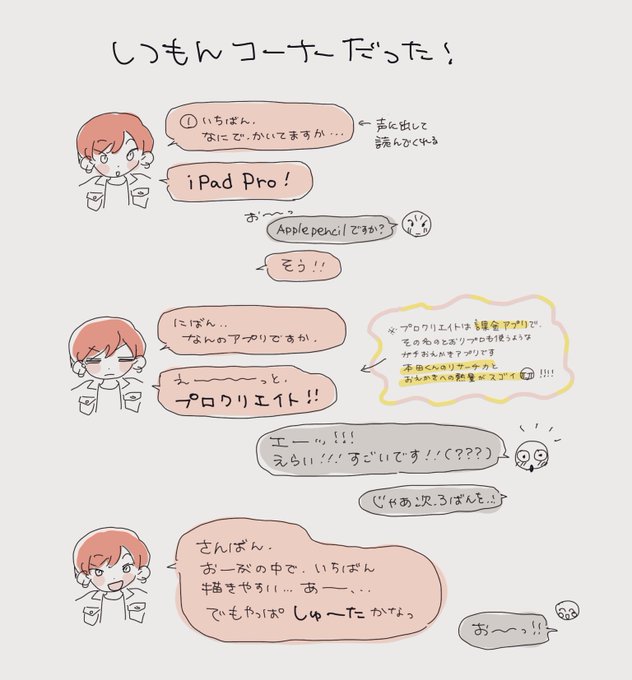 しつもんコーナーだった!
①いちばん、
なにで、かいてますか…
←声に出して
読んでくれる
iPad Pro!
お〜〜っ
Applepencilですか?
そう!!
にばん..
なんのアプリですか、
※プロクリエイトは課金アプリで、
その名のとおりプロも使うような
ガチおえかきアプリです
本田くんのリサーチ力と
おえかきへの熱量がスゴイ!!!!
え————っと、
プロクリエイト!!
エーッ!!!
えらい!!!すごいです!!(???)
じゃあ次、3ばんを..!
さんばん、
お一方の中で、いちばん
描きやすい…あー、、
でもやっぱ しゅ〜た かなっ
お〜〜っ!!